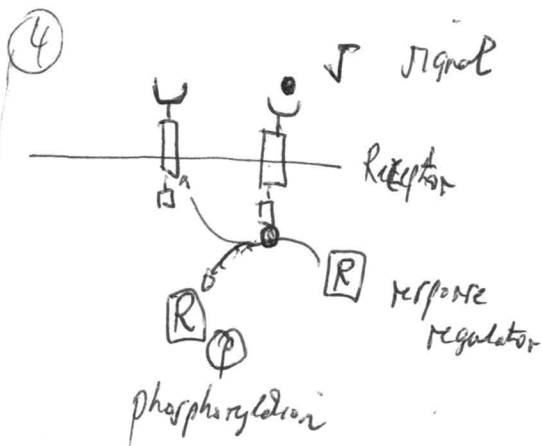 4
signal
Receptor
R
response
regulator
R
P
phosphorylation